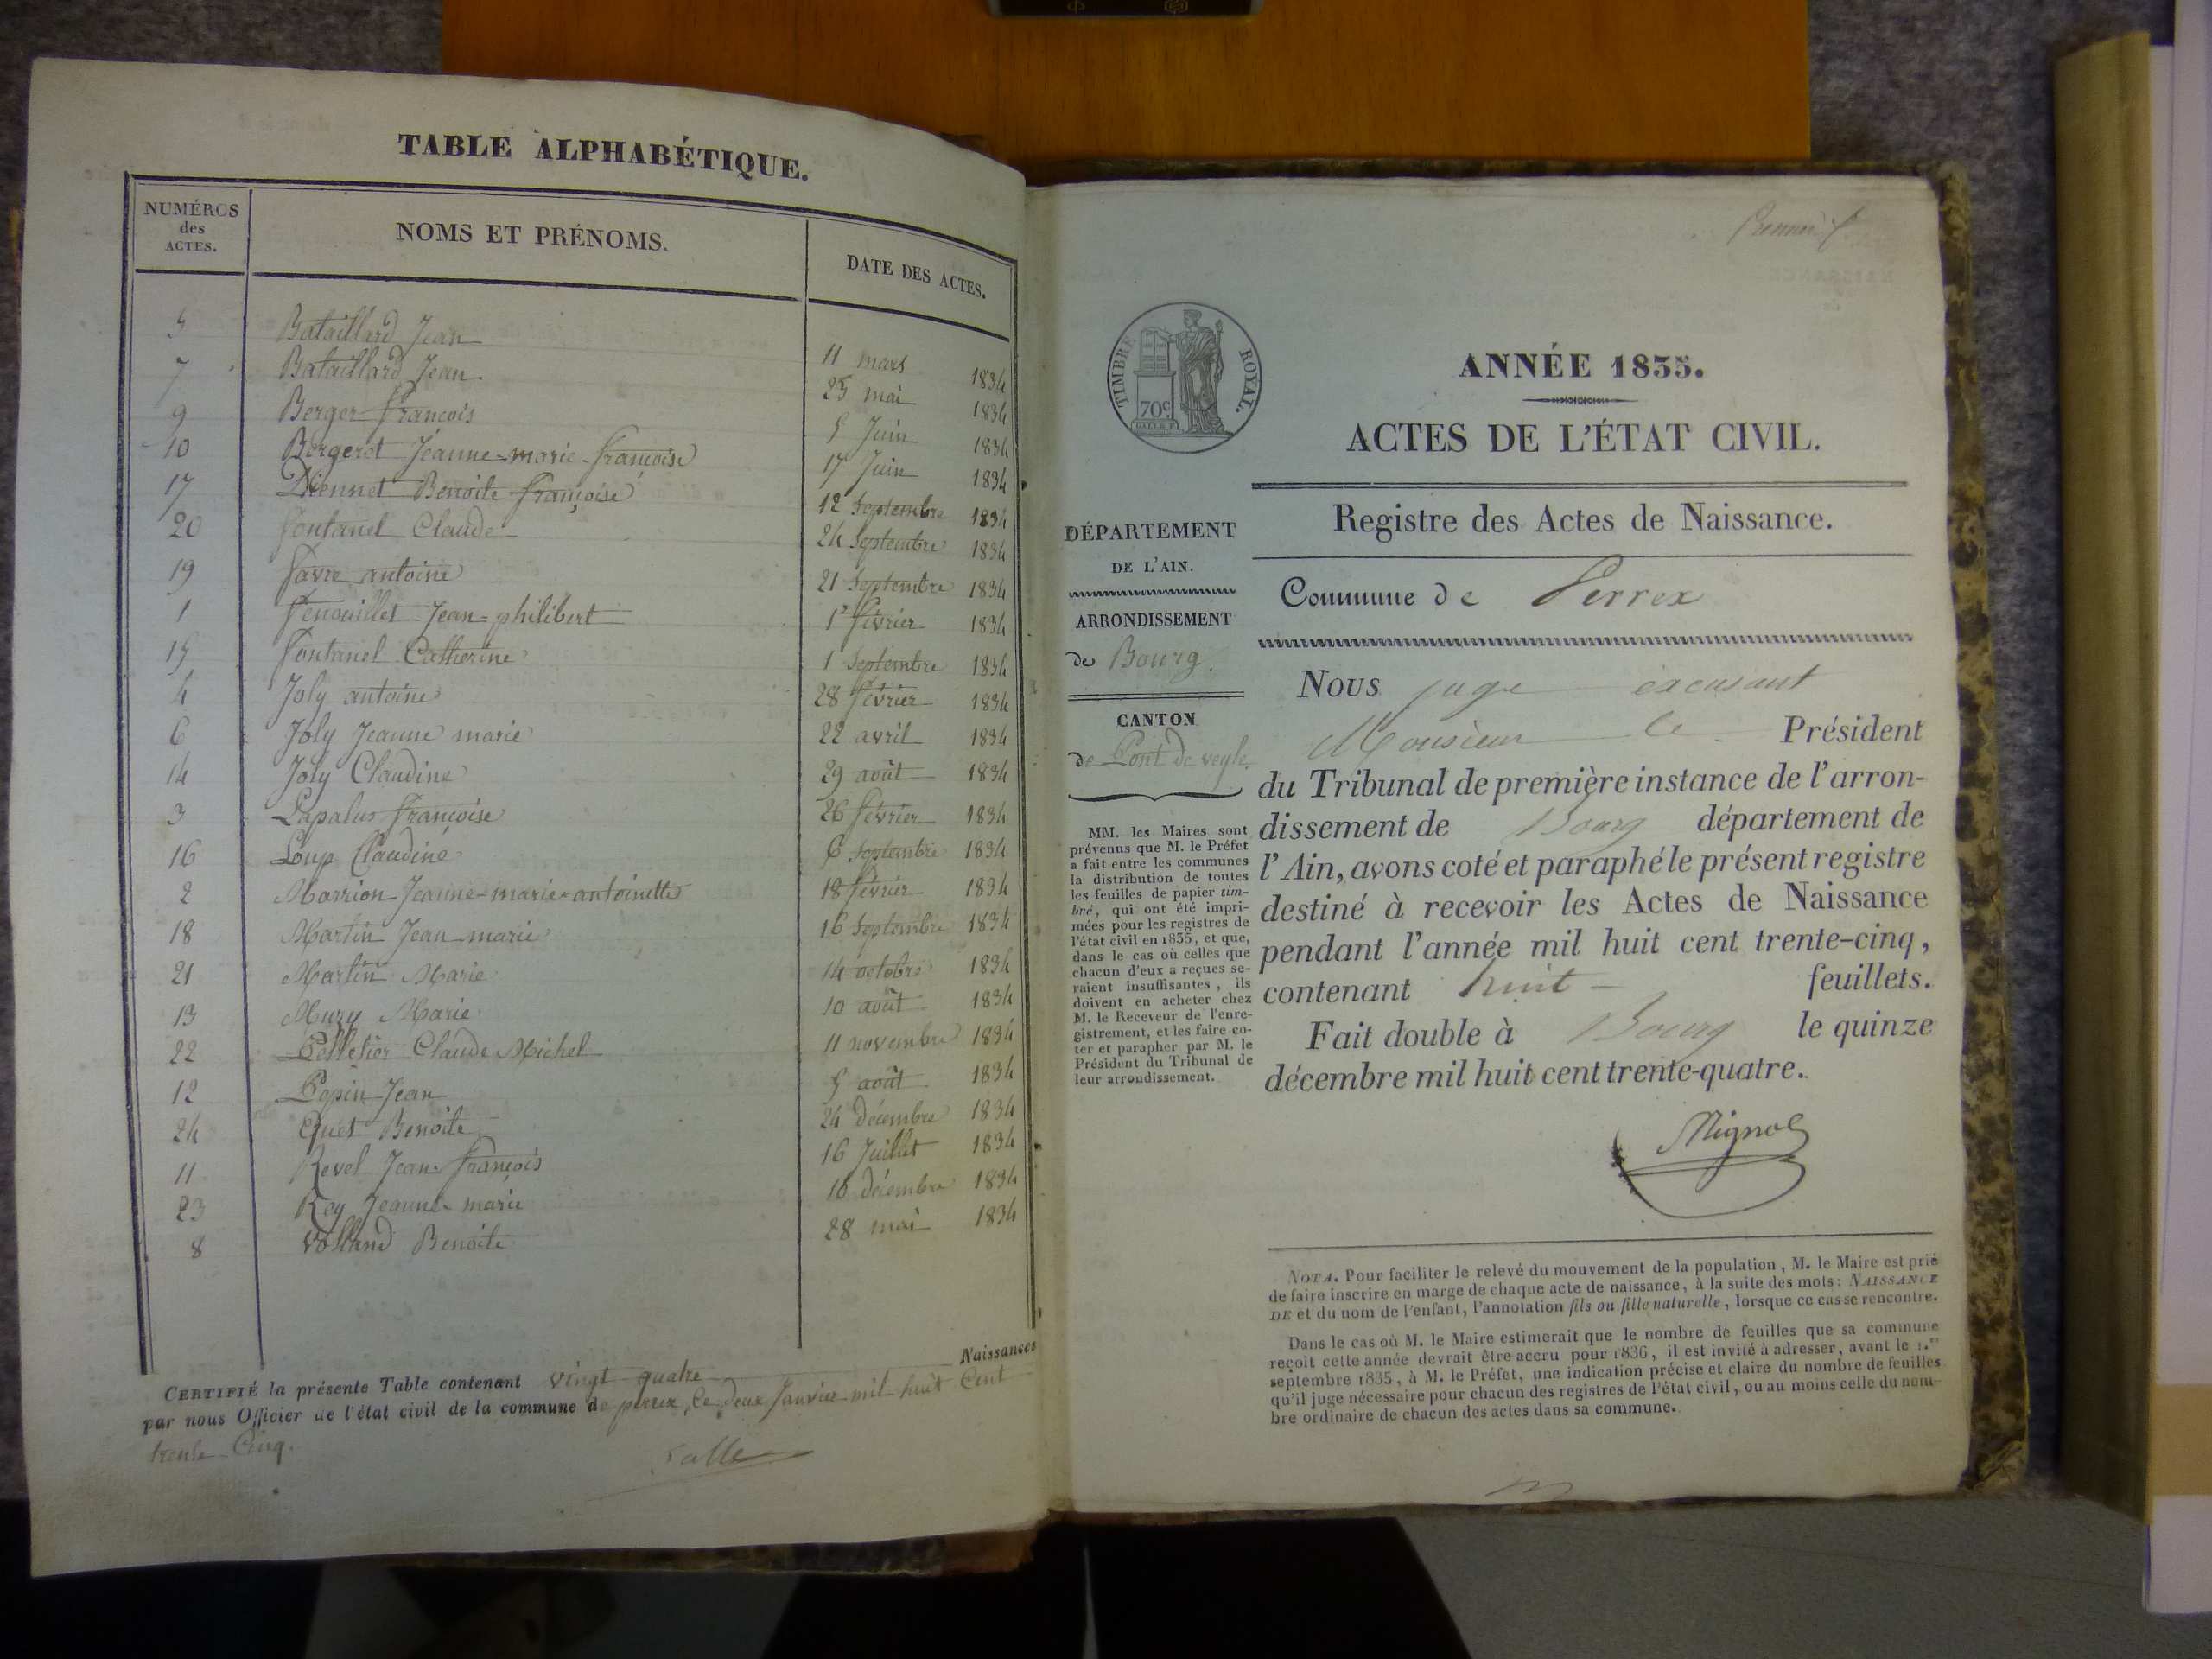 TABLE ALPHABÉTIQUE.
NUMÉROS des ACTES. NOMS ET PRÉNOMS. DATE DES ACTES.
5 Bataillard Jean 11 mars 1834
7 Bataillard Jean 25 mai 1834
9 Berger françois 5 Juin 1834
10 Bergeret Jeanne-marie-françoise 17 Juin 1834
17 Diennet Benoite françoise 12 Septembre 1834
20 fontanel Claude 24 Septembre 1834
19 favre antoine 21 Septembre 1834
1 fenouillet Jean-philibert 1er février 1834
15 fontanel Catherine 1 Septembre 1834
4 Joly antoine 28 février 1834
6 Joly Jeanne marie 22 avril 1834
14 Joly Claudine 29 août 1834
3 Lapalus françoise 26 février 1834
16 Loup Claudine 6 Septembre 1834
2 Marrion Jeanne-marie-antoinette 18 février 1834
18 Martin Jean marie 16 Septembre 1834
21 Martin Marie 14 octobre 1834
13 Mury Marie 10 août 1834
22 Pelletier Claude Michel 11 novembre 1834
12 Popin Jean 5 août 1834
24 Quet Benoite 24 décembre 1834
11 Revel Jean françois 16 Juillet 1834
23 Rey Jeanne-marie décembre 1834
8 Volland Benoite 28 mai 1834
CERTIFIÉ la présente Table contenant vingt quatre Naissances
par nous Officier de l'état civil de la commune de perrex, le deux Janvier mil huit Cent
trente Cinq.
TIMBRE ROYAL.
70c
ANNÉE 1835.
ACTES DE L'ÉTAT CIVIL.
Registre des Actes de Naissance.
Commune de Perrex
DÉPARTEMENT
DE L'AIN.
ARRONDISSEMENT
de Bourg.
CANTON
de Pont de veyle.
MM. les Maires sont
prévenus que M. le Préfet
a fait entre les communes
la distribution de toutes
les feuilles de papier tim-
bré, qui ont été impri-
mées pour les registres de
l'état civil en 1835, et que,
dans le cas où celles que
chacun d'eux a reçues se-
raient insuffisantes, ils
doivent en acheter chez
M. le Receveur de l'enre-
gistrement, et les faire co-
ter et parapher par M. le
Président du Tribunal de
leur arrondissement.
Nous juge excusant
Monsieur le Président
du Tribunal de première instance de l'arron-
dissement de Bourg département de
l'Ain, avons coté et paraphé le présent registre
destiné à recevoir les Actes de Naissance
pendant l'année mil huit cent trente-cinq,
contenant huit feuillets.
Fait double à Bourg le quinze
décembre mil huit cent trente-quatre.
NOTA. Pour faciliter le relevé du mouvement de la population, M. le Maire est prié
de faire inscrire en marge de chaque acte de naissance, à la suite des mots: NAISSANCE
DE et du nom de l'enfant, l'annotation fils ou fille naturelle, lorsque ce cas se rencontre.
Dans le cas où M. le Maire estimerait que le nombre de feuilles que sa commune
reçoit cette année devrait être accru pour 1836, il est invité à adresser, avant le 1.er
septembre 1835, à M. le Préfet, une indication précise et claire du nombre de feuilles
qu'il juge nécessaire pour chacun des registres de l'état civil, ou au moins celle du nom-
bre ordinaire de chacun des actes dans sa commune.